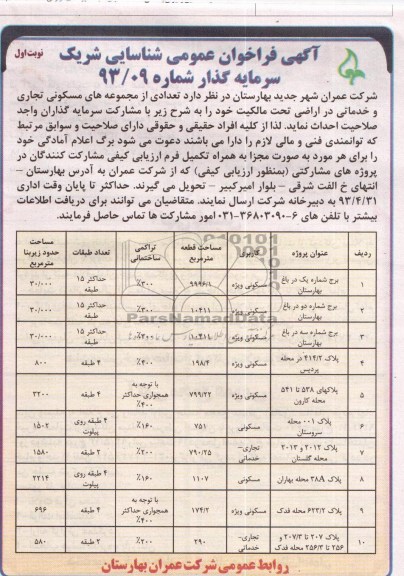 نوبت اول
آگهی فراخوان عمومی شناسایی شریک
سرمایه گذار شماره ۹۳/۰۹
شرکت عمران شهر جدید بهارستان در نظر دارد تعدادی از مجموعه های مسکونی تجاری
و خدماتی در اراضی تحت مالکیت خود را به شرح زیر با مشارکت سرمایه گذاران واجد
صلاحیت احداث نماید. لذا از کلیه افراد حقیقی و حقوقی دارای صلاحیت و سوابق مرتبط
که توانمندی فنی و مالی لازم را دارا می باشند دعوت می شود برگ اعلام آمادگی خود
را برای هر مورد به صورت مجزا به همراه تکمیل فرم ارزیابی کیفی مشارکت کنندگان در
پروژه های مشارکتی (بمنظور ارزیابی کیفی) که از شرکت عمران به آدرس بهارستان –
انتهای خ الفت شرقی – بلوار امیرکبیر – تحویل می گیرند. حداکثر تا پایان وقت اداری
۹۳/۴/۳۱ به دبیرخانه شرکت ارسال نمایند. متقاضیان می توانند برای دریافت اطلاعات
بیشتر با تلفن های ۶-۳۶۸۰۳۰۹۰-۰۳۱ امور مشارکت ها تماس حاصل فرمایند.
ردیف عنوان پروژه کاربری مساحت قطعه مترمربع تراکم ساختمانی تعداد طبقات مساحت حدود زیربنا مترمربع
۱ برج شماره یک در باغ بهارستان مسکونی ویژه ۹۹۹۶/۱ ۳۰۰٪ حداکثر ۱۵ طبقه ۳۰/۰۰۰
۲ برج شماره دو در باغ بهارستان مسکونی ویژه ۱۰۴۱۱ ۳۰۰٪ حداکثر ۱۵ طبقه ۳۰/۰۰۰
۳ برج شماره سه در باغ بهارستان مسکونی ویژه ۳۰۰٪ حداکثر ۱۵ طبقه ۳۰/۰۰۰
۴ پلاک ۴۱۴/۲ در محله پردیس مسکونی ویژه ۱۹۸/۴ ۴۰۰٪ ۴ طبقه ۸۰۰
۵ پلاکهای ۵۳۸ تا ۵۴۱ محله کارون مسکونی ویژه ۷۹۹/۲۲ با توجه به همجواری حداکثر ۴۰۰٪ ۳۲۰۰
۶ پلاک ۰۰۱ محله سروستان مسکونی ۷۵۱ ۱۶۰٪ ۴ طبقه روی پیلوت ۱۵۰۲
۷ پلاک ۲۰۱۲ و ۲۰۱۳ محله گلستان تجاری- خدماتی ۷۹۰/۲۵ ۲۰۰٪ ۲ طبقه ۱۵۸۰
۸ پلاک ۲۸A محله بهاران مسکونی ۱۱۰۷ ۱۶۰٪ ۴ طبقه روی پیلوت ۲۲۱۴
۹ پلاک ۶۲۲/۲ محله فدک مسکونی ویژه ۱۷۴/۲ با توجه به همجواری حداکثر ۴۰۰٪ ۴ طبقه ۶۹۶
۱۰ پلاک ۲۰۷ تا ۲۰۷/۳ و ۲۵۶ تا ۲۵۶/۳ محله فدک تجاری- خدماتی ۲۹۰ ۲۰۰٪ ۲ طبقه ۵۸۰
ParsNamadData
روابط عمومی شرکت عمران بهارستان